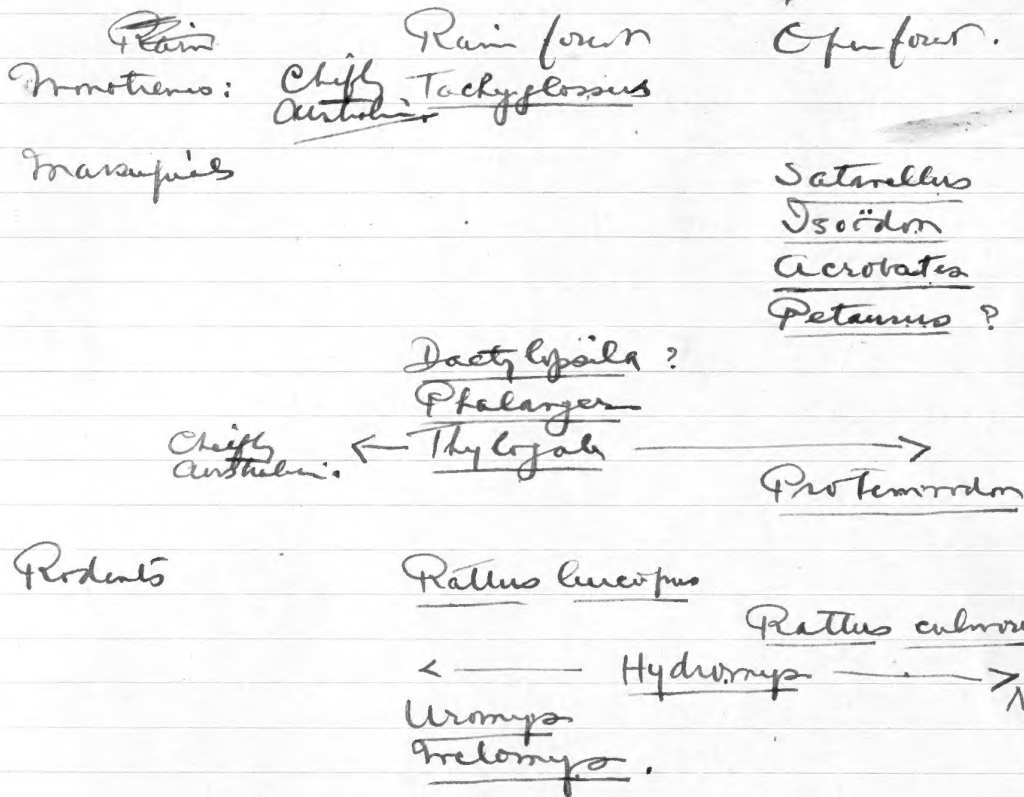 Rain Rain forest Open forest.
Monotremes: Chiefly Australian. Tachyglossus
Marsupials Satanellus
Isoödon
Acrobates
Petaurus ?
Dactylopsila ?
Phalanger
Chiefly Australian. ← Thylogale →
Protemnodon
Rodents Rattus leucopus
Rattus culmor
< Hydromys >
Uromys
Melomys.